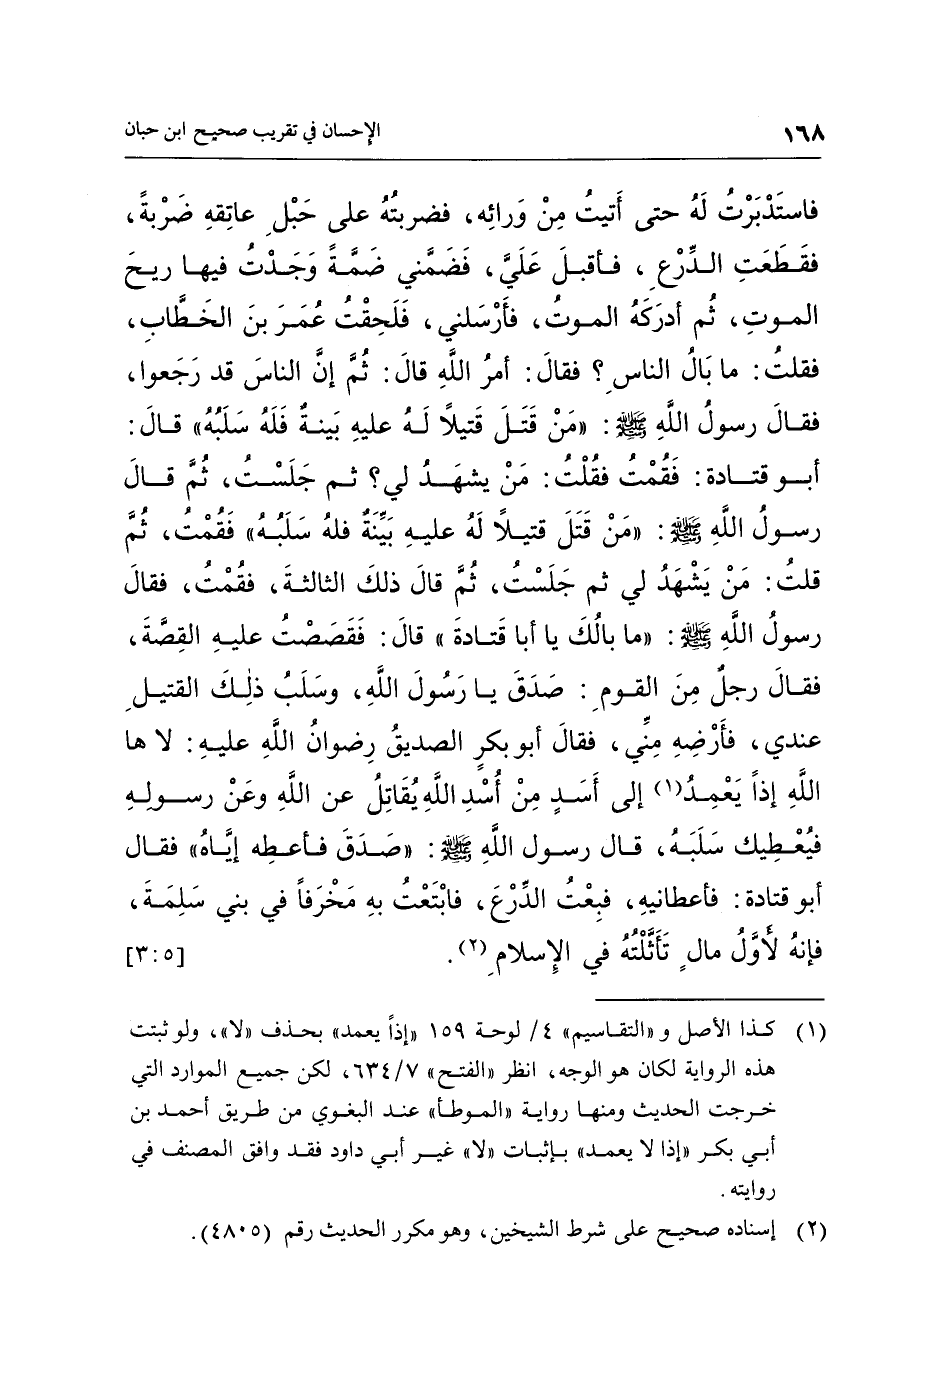 ١٦٨ الإحسان في تقريب صحيح ابن حبان
فاستَدْبَرْتُ لَهُ حتى أَتيتُ مِنْ وَرائِه، فضربتُهُ على حَبْلِ عاتِقهِ ضَرْبةً،
فقَطَعَتِ الدِّرْعِ، فأقبلَ عَلَيَّ، فَضَمَّني ضَمَّةً وَجَدْتُ فيها ريحَ
الموتِ، ثُم أدرَكَهُ الموتُ، فأَرْسَلني، فَلَحِقْتُ عُمَرَ بنَ الخَطَّابِ،
فقلتُ: ما بَالُ الناسِ؟ فقالَ: أمرُ اللَّهِ قالَ: ثُمَّ إنَّ الناسَ قد رَجَعوا،
فقالَ رسولُ اللَّهِ ﷺ: «مَنْ قَتَلَ قَتيلاً لَهُ عليهِ بَينةٌ فَلَهُ سَلَبُهُ» قالَ:
أبو قتادة: فَقُمْتُ فقُلْتُ: مَنْ يشهَدُ لي؟ ثم جَلَسْتُ، ثُمَّ قالَ
رسولُ اللَّهِ ﷺ: «مَنْ قَتَلَ قتيلاً لَهُ عليهِ بَيِّنَةٌ فلهُ سَلَبُهُ» فَقُمْتُ، ثُمَّ
قلتُ: مَنْ يَشْهَدُ لي ثم جَلَسْتُ، ثُمَّ قالَ ذلكَ الثالثةَ، فقُمْتُ، فقالَ
رسولُ اللَّهِ ﷺ: «ما بالُكَ يا أبا قَتادةَ» قالَ: فَقَصَصْتُ عليهِ القِصَّةَ،
فقالَ رجلٌ مِنَ القومِ: صَدَقَ يا رَسُولَ اللَّهِ، وسَلَبُ ذٰلِكَ القتيلِ
عندي، فأَرْضِهِ مِنِّي، فقالَ أبو بكرٍ الصديقُ رِضوانُ اللَّهِ عليهِ: لا ها
اللَّهِ إذاً يَعْمِدُ(١) إلى أَسَدٍ مِنْ أُسْدِ اللَّهِ يُقَاتِلُ عن اللَّهِ وعَنْ رسولِهِ
فيُعْطِيك سَلَبَهُ، قال رسول اللَّهِ ﷺ: «صَدَقَ فأعطِه إيَّاهُ» فقال
أبو قتادة: فأعطانيهِ، فبِعْتُ الدِّرْعَ، فابْتَعْتُ بِهِ مَخْرَفاً في بني سَلِمَةَ،
فإنهُ لأَوَّلُ مالٍ تَأَثَّلْتُهُ في الإِسلامِ(٢). [٣:٥]
(١) كذا الأصل و «التقاسيم» ٤/ لوحة ١٥٩ «إذاً يعمد» بحذف «لا»، ولو ثبتت
هذه الرواية لكان هو الوجه، انظر «الفتح» ٦٣٤/٧، لكن جميع الموارد التي
خرجت الحديث ومنها رواية «الموطأ» عند البغوي من طريق أحمد بن
أبي بكر «إذا لا يعمد» بإثبات «لا» غير أبي داود فقد وافق المصنف في
روايته.
(٢) إسناده صحيح على شرط الشيخين، وهو مكرر الحديث رقم (٤٨٠٥).